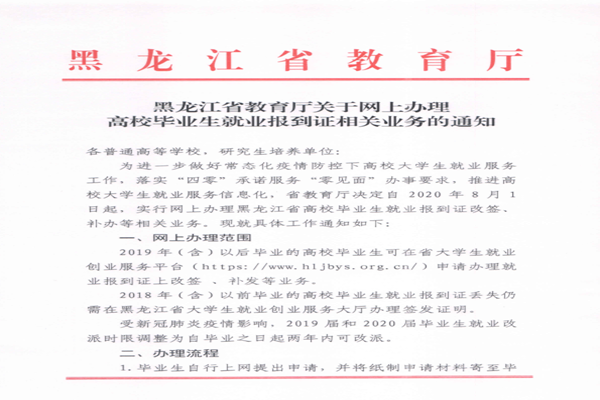 黑龙江省教育厅
黑龙江省教育厅关于网上办理
高校毕业生就业报到证相关业务的通知
各普通高等学校，研究生培养单位：
为进一步做好常态化疫情防控下高校大学生就业服务
工作，落实“四零”承诺服务“零见面”办事要求，推进高
校大学生就业服务信息化，省教育厅决定自 2020 年 8 月 1
日起，实行网上办理黑龙江省高校毕业生就业报到证改签、
补办等相关业务。现就具体工作通知如下：
一、网上办理范围
2019 年（含）以后毕业的高校毕业生可在省大学生就业
创业服务平台（https://www.hljbys.org.cn/）申请办理就
业报到证上改签 、补发等业务。
2018 年（含）以前毕业的高校毕业生就业报到证丢失仍
需在黑龙江省大学生就业创业服务大厅办理签发证明。
受新冠肺炎疫情影响，2019 届和 2020 届毕业生就业改
派时限调整为自毕业之日起两年内可改派。
二、办理流程
1.毕业生自行上网提出申请，并将纸制申请材料寄至毕